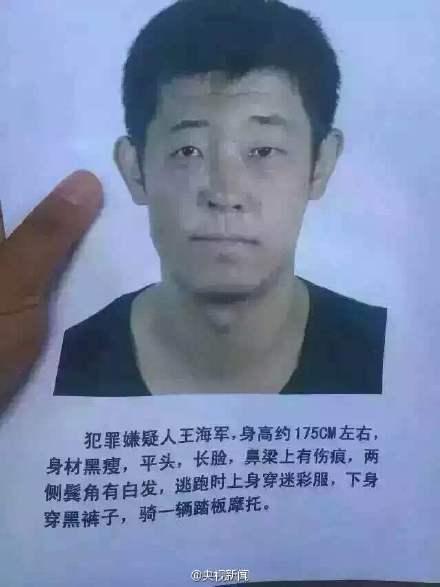 犯罪嫌疑人王海军，身高约175CM左右，
身材黑瘦，平头，长脸，鼻梁上有伤痕，两
侧鬓角有白发，逃跑时上身穿迷彩服，下身
穿黑裤子，骑一辆踏板摩托。
@央视新闻